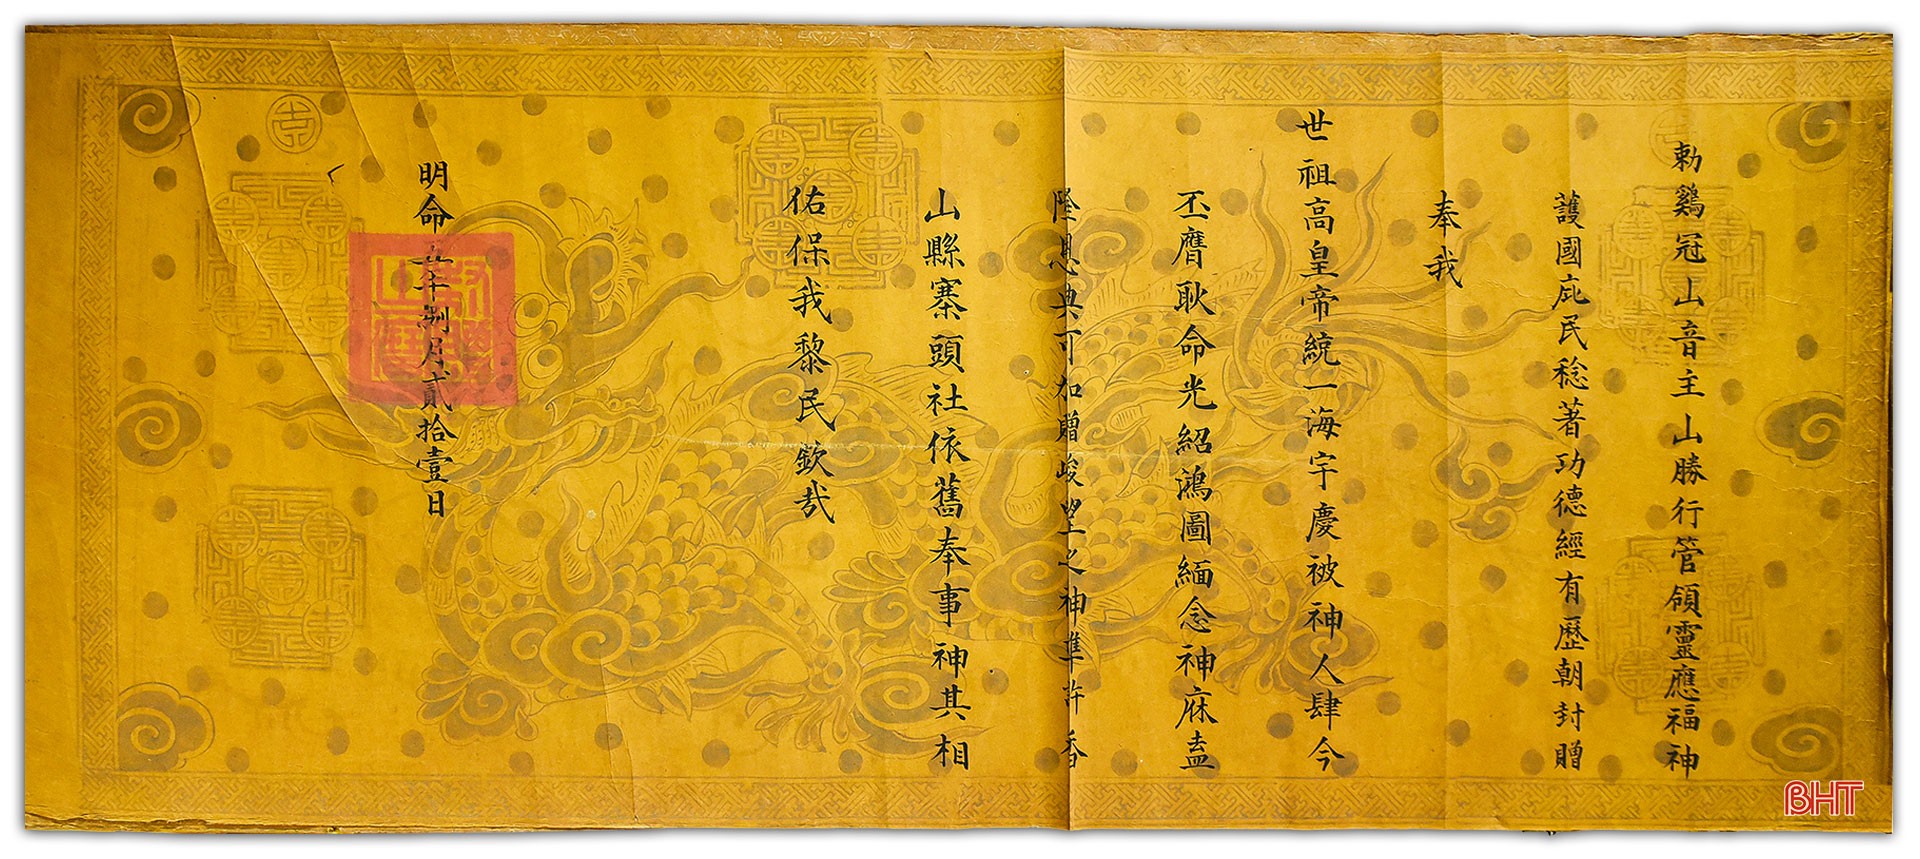 勅鷄冠山音主山勝行管領靈應福神
護國庇民稔著功德經有歷朝封贈
奉我
世祖高皇帝統一海宇慶被神人肆今
丕膺耿命光紹鴻圖緬念神庥盍
隆恩典可加贈峻望之神準許香
山縣寨頭社依舊奉事神其相
佑保我黎民欽哉
明命五年制月貳拾壹日
BHT